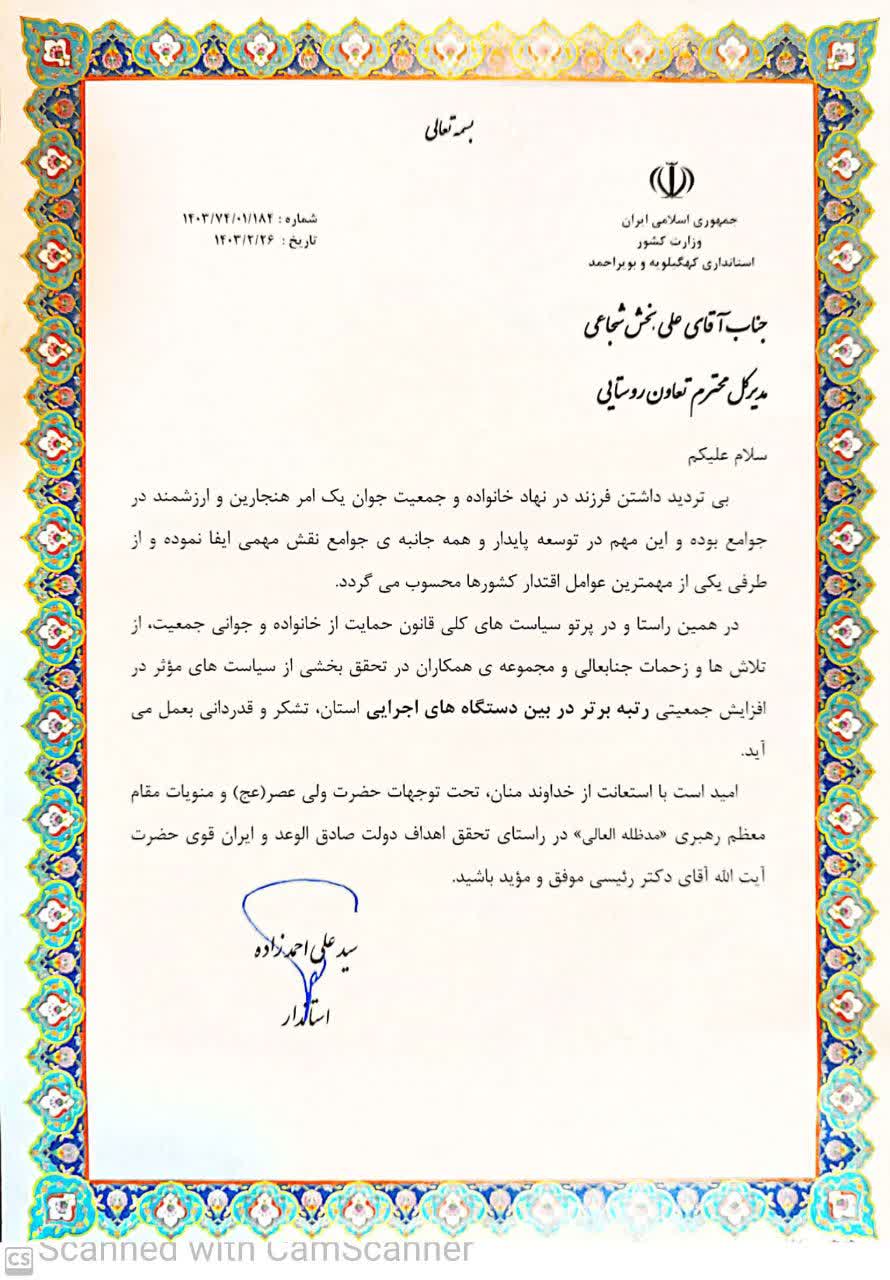 بسمه تعالی
جمهوری اسلامی ایران
وزارت کشور
استانداری کهگیلویه و بویراحمد
شماره : ۱۴۰۳/۷۴/۰۱/۱۸۴
تاریخ : ۱۴۰۳/۲/۲۶
جناب آقای علی بخش شجاعی
مدیرکل محترم تعاون روستایی
سلام علیکم
بی تردید داشتن فرزند در نهاد خانواده و جمعیت جوان یک امر هنجارین و ارزشمند در
جوامع بوده و این مهم در توسعه پایدار و همه جانبه ی جوامع نقش مهمی ایفا نموده و از
طرفی یکی از مهمترین عوامل اقتدار کشورها محسوب می گردد.
در همین راستا و در پرتو سیاست های کلی قانون حمایت از خانواده و جوانی جمعیت، از
تلاش ها و زحمات جنابعالی و مجموعه ی همکاران در تحقق بخشی از سیاست های مؤثر در
افزایش جمعیتی رتبه برتر در بین دستگاه های اجرایی استان، تشکر و قدردانی بعمل می
آید.
امید است با استعانت از خداوند منان، تحت توجهات حضرت ولی عصر(عج) و منویات مقام
معظم رهبری «مدظله العالی» در راستای تحقق اهداف دولت صادق الوعد و ایران قوی حضرت
آیت الله آقای دکتر رئیسی موفق و مؤید باشید.
سید علی احمدزاده
استاندار
CS Scanned with CamScanner